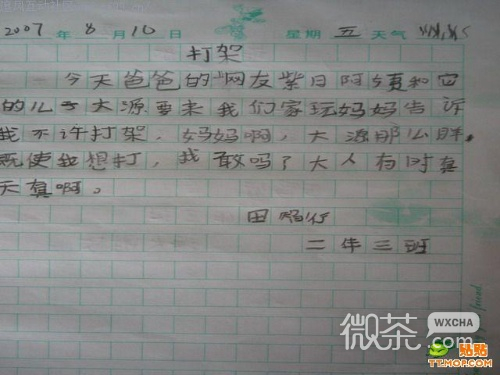 2007 年 8 月 10 日 星期 五 天气
打架
今天爸爸的网友紫日阿姨和它
的儿子大源要来我们家玩妈妈告诉
我不许打架,妈妈啊,大源那么胖,
既使我想打,我敢吗?大人有时真
天真啊。
田
二年三班
微茶
WXCHA
.COM
贴贴
TT.MOP.COM
friend